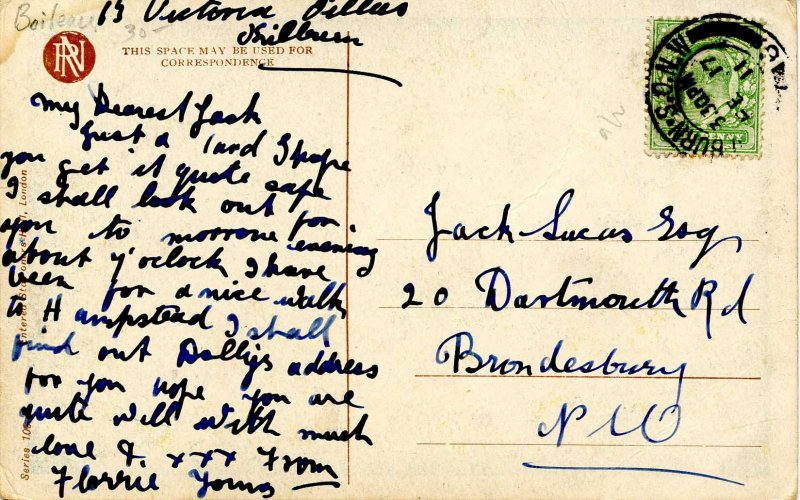 Boileau
30
13 Victoria Villas
Kilburn
RN
THIS SPACE MAY BE USED FOR
CORRESPONDENCE
My Dearest Jack
Just a Card I hope
you get it quite safe
I shall look out for
you to morrow evening
about 7 o'clock I have
been for a nice walk
to Hampstead I shall
find out Dollys address
for you hope you are
quite well with much
love & xxx From
Florrie Young
Jack Lucas Esq
20 Dartmouth Rd
Brondesbury
NW
KILBURN S.O. N.W.
3.30 PM
17
11
PENNY
Entered Stationers Hall, London
Series